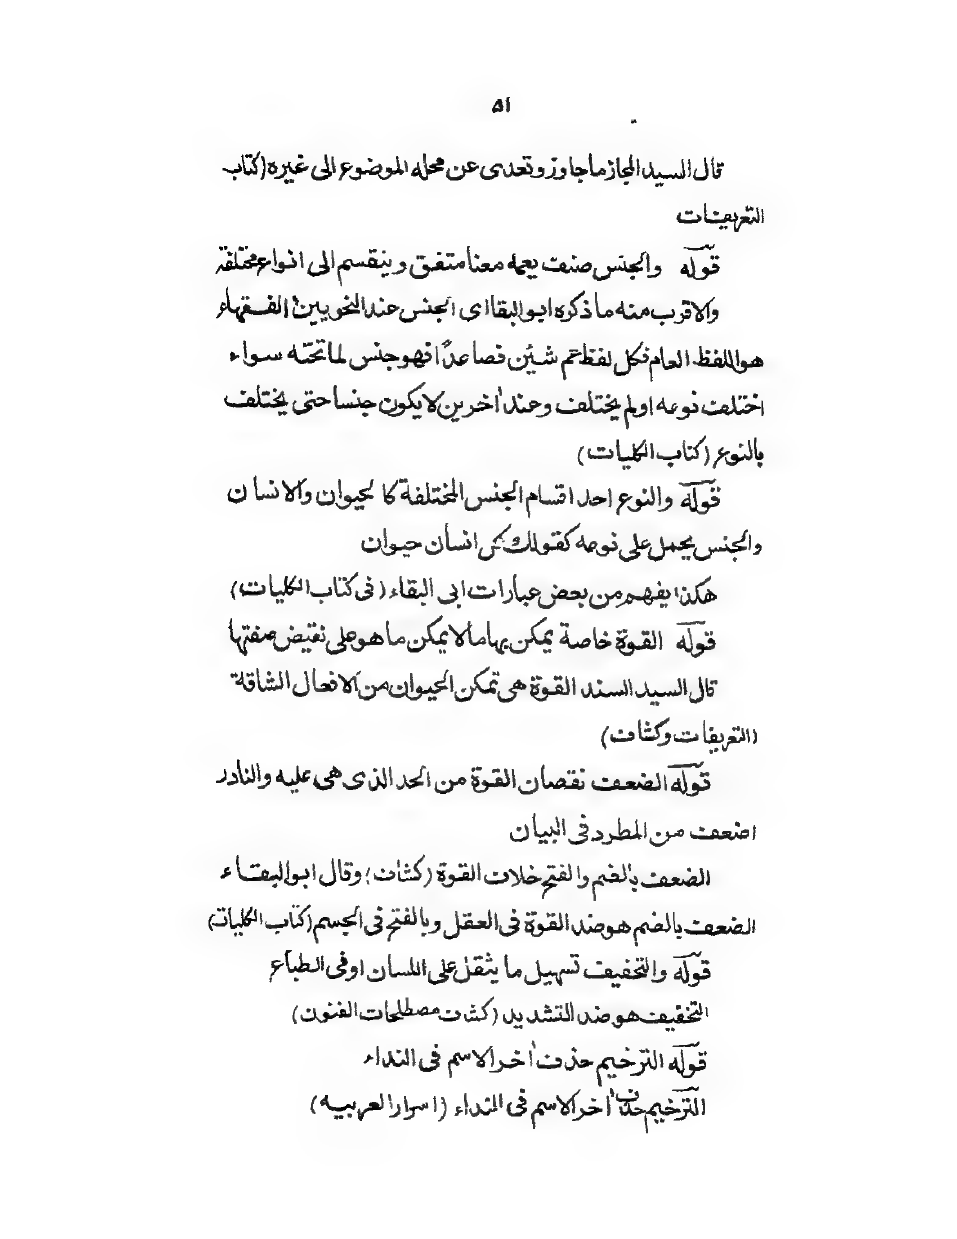 ٥١
قال السيد المجاز ما جاوز وتعدى عن محله الموضوع الى غيره (كتاب
التعريفات
قوله والجنس صنف يعمه معنا متفق وينقسم الى انواع مختلفة
والاقرب منه ما ذكره ابو البقا اى الجنس عند النحويين الفقهاء
هو اللفظ العام فكل لفظ عم شئين فصاعداً فهو جنس لما تحته سواء
اختلف نوعه او لم يختلف وعند اٰخرين لا يكون جنسا حتى يختلف
بالنوع (كتاب الكليات)
قوله والنوع احد اقسام الجنس المختلفة كالحيوان والانسان
والجنس يحمل على نوعه كقولك كل انسان حيوان
هكذا يفهم من بعض عبارات ابى البقاء (فى كتاب الكليات)
قوله القوة خاصة يمكن بها ما لا يمكن ما هو على نقيض صفتها
قال السيد السند القوة هى تمكن الحيوان من الافعال الشاقة
(التعريفات وكشاف)
قوله الضعف نقصان القوة من الحد الذى هى عليه والنادر
اضعف من المطرد فى البيان
الضعف بالضم والفتح خلاف القوة (كشاف) وقال ابو البقاء
الضعف بالضم هو ضد القوة فى العقل وبالفتح فى الجسم (كتاب الكليات)
قوله والتخفيف تسهيل ما يثقل على اللسان او فى الطباع
التخفيف هو ضد التشديد (كشاف مصطلحات الفنون)
قوله الترخيم حذف اٰخر الاسم فى النداء
الترخيم حذف اٰخر الاسم فى النداء (اسرار العربيه)